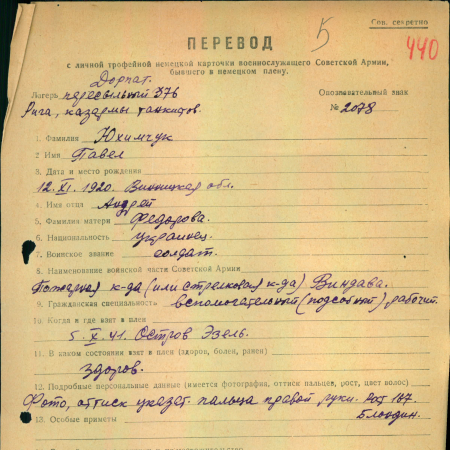 Сов. секретно
5
440
ПЕРЕВОД
к личной трофейной немецкой карточки военнослужащего Советской Армии,
бывшего в немецком плену.
Дорпат.
Лагерь пересыльный 376
Опознавательный знак
Рига, казармы танкистов.
№ 2078
1. Фамилия Юхимчук
2 Имя Павел
3. Дата и место рождения
12. XI. 1920. Винницкая обл.
4. Имя отца Андрей
5. Фамилия матери Федорова.
6. Национальность украинец.
7. Воинское звание солдат.
8. Наименование воинской части Советской Армии
Пожарная к-да (или стрелковая к-да) Виндава.
9. Гражданская специальность вспомогательный (подсобный) рабочий.
10. Когда и где взят в плен
5. X. 41. Остров Эзель.
11. В каком состоянии взят в плен (здоров, болен, ранен)
Здоров.
12. Подробные персональные данные (имеется фотография, оттиск пальцев, рост, цвет волос)
Фото, оттиск указат. пальца правой руки. Рост 167.
13. Особые приметы Блондин.